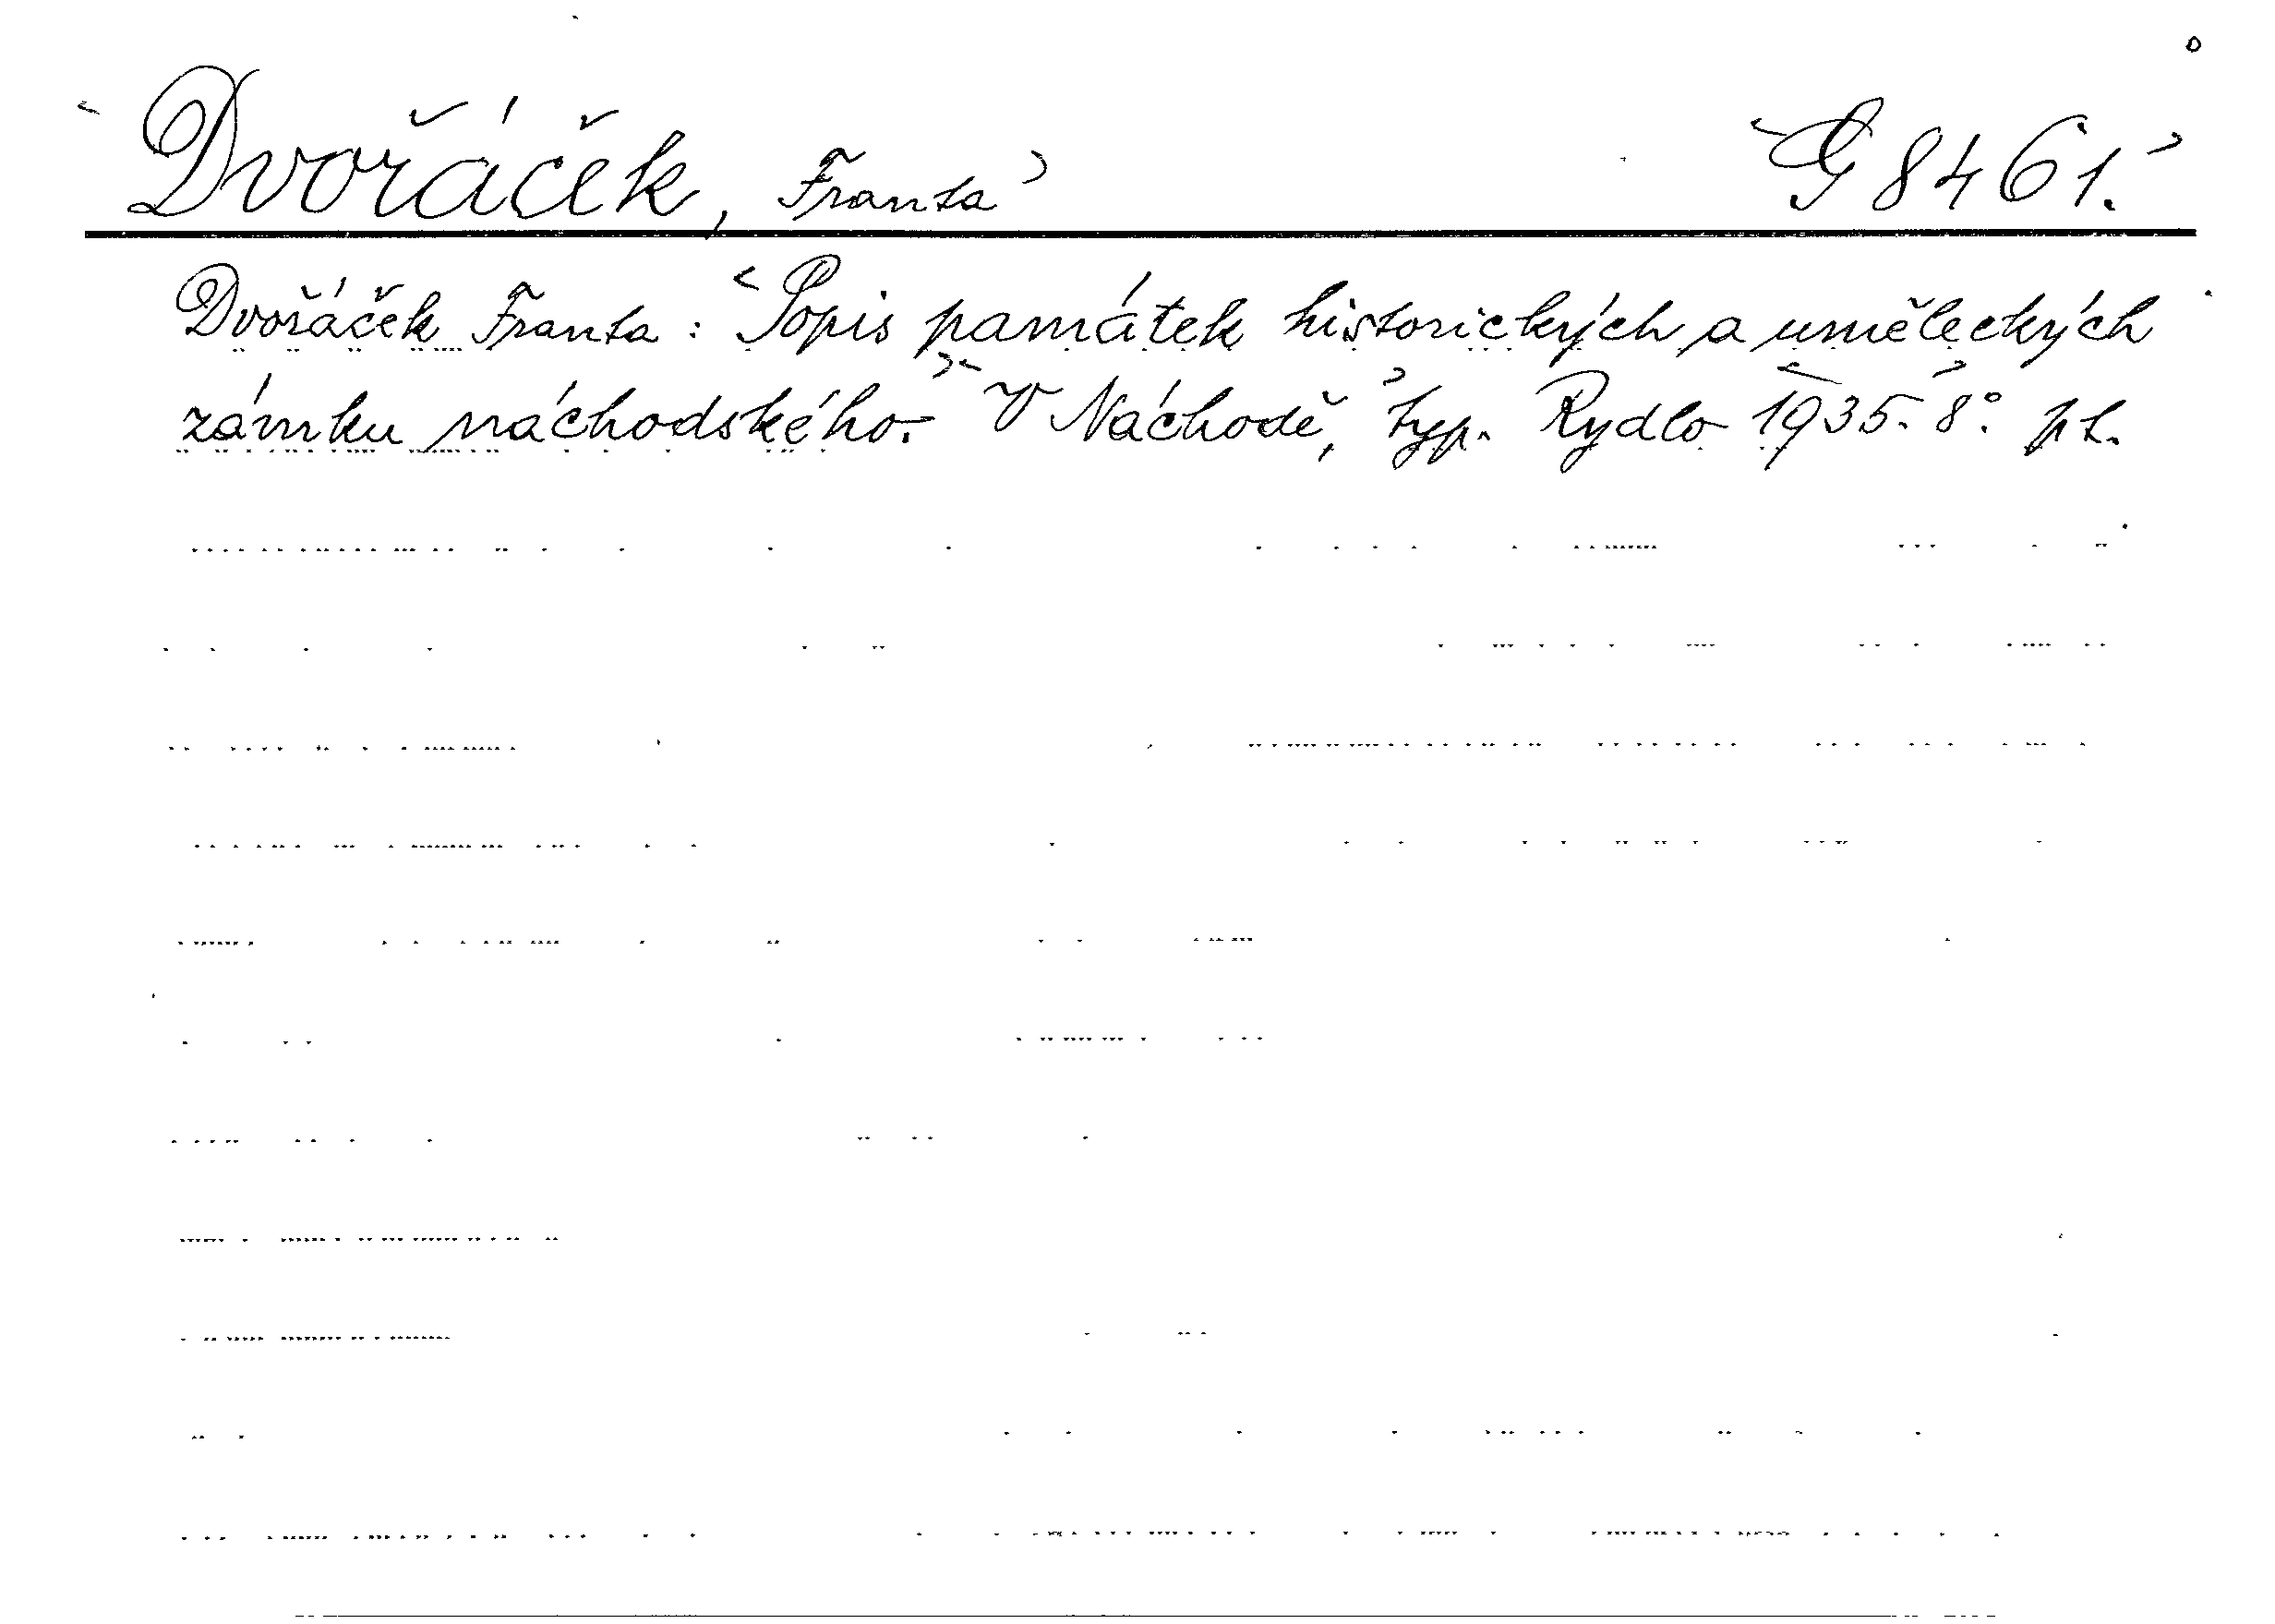 Dvořáček, Franta G 8461.
Dvořáček Franta: Popis památek historických a uměleckých
zámku náchodského. V Náchodě, typ. Rydlo 1935. 8°. pt.